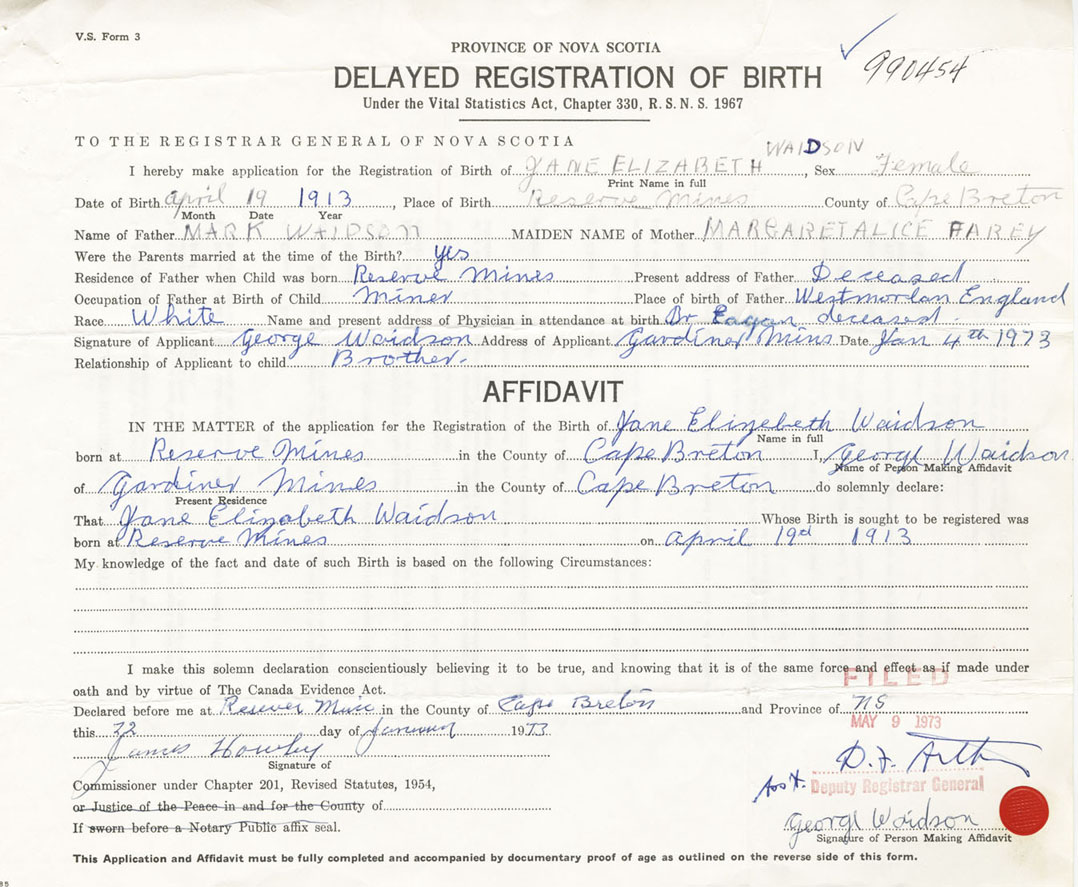 V.S. Form 3
990454
PROVINCE OF NOVA SCOTIA
DELAYED REGISTRATION OF BIRTH
Under the Vital Statistics Act, Chapter 330, R.S.N.S. 1967
TO THE REGISTRAR GENERAL OF NOVA SCOTIA
WAIDSON
I hereby make application for the Registration of Birth of JANE ELIZABETH, Sex Female
Print Name in full
Date of Birth April 19 1913, Place of Birth Reserve Mines County of Cape Breton
Month Date Year
Name of Father MARK WAIDSON MAIDEN NAME of Mother MARGARET ALICE FAREY
Were the Parents married at the time of the Birth? yes
Residence of Father when Child was born Reserve Mines Present address of Father Deceased
Occupation of Father at Birth of Child Miner Place of birth of Father Westmorlan England
Race White Name and present address of Physician in attendance at birth Dr Eagan deceased.
Signature of Applicant George Waidson Address of Applicant Gardiner Mins Date Jan 4th 1973
Relationship of Applicant to child Brother.
AFFIDAVIT
IN THE MATTER of the application for the Registration of the Birth of Jane Elizebeth Waidson
Name in full
born at Reserve Mines in the County of Cape Breton I, George Waidson
Name of Person Making Affidavit
of Gardiner Mines in the County of Cape Breton do solemnly declare:
Present Residence
That Jane Elizabeth Waidson Whose Birth is sought to be registered was
born at Reserve Mines on April 19d 1913
My knowledge of the fact and date of such Birth is based on the following Circumstances:
I make this solemn declaration conscientiously believing it to be true, and knowing that it is of the same force and effect as if made under
FILED
oath and by virtue of The Canada Evidence Act.
Declared before me at Reserve in the County of Cape Breton and Province of NS
MAY 9 1973
this 22 day of January 1973
James
Signature of
D.F.
Commissioner under Chapter 201, Revised Statutes, 1954,
Asst. Deputy Registrar General
or Justice of the Peace in and for the County of
George Waidson
If sworn before a Notary Public affix seal.
Signature of Person Making Affidavit
This Application and Affidavit must be fully completed and accompanied by documentary proof of age as outlined on the reverse side of this form.
85